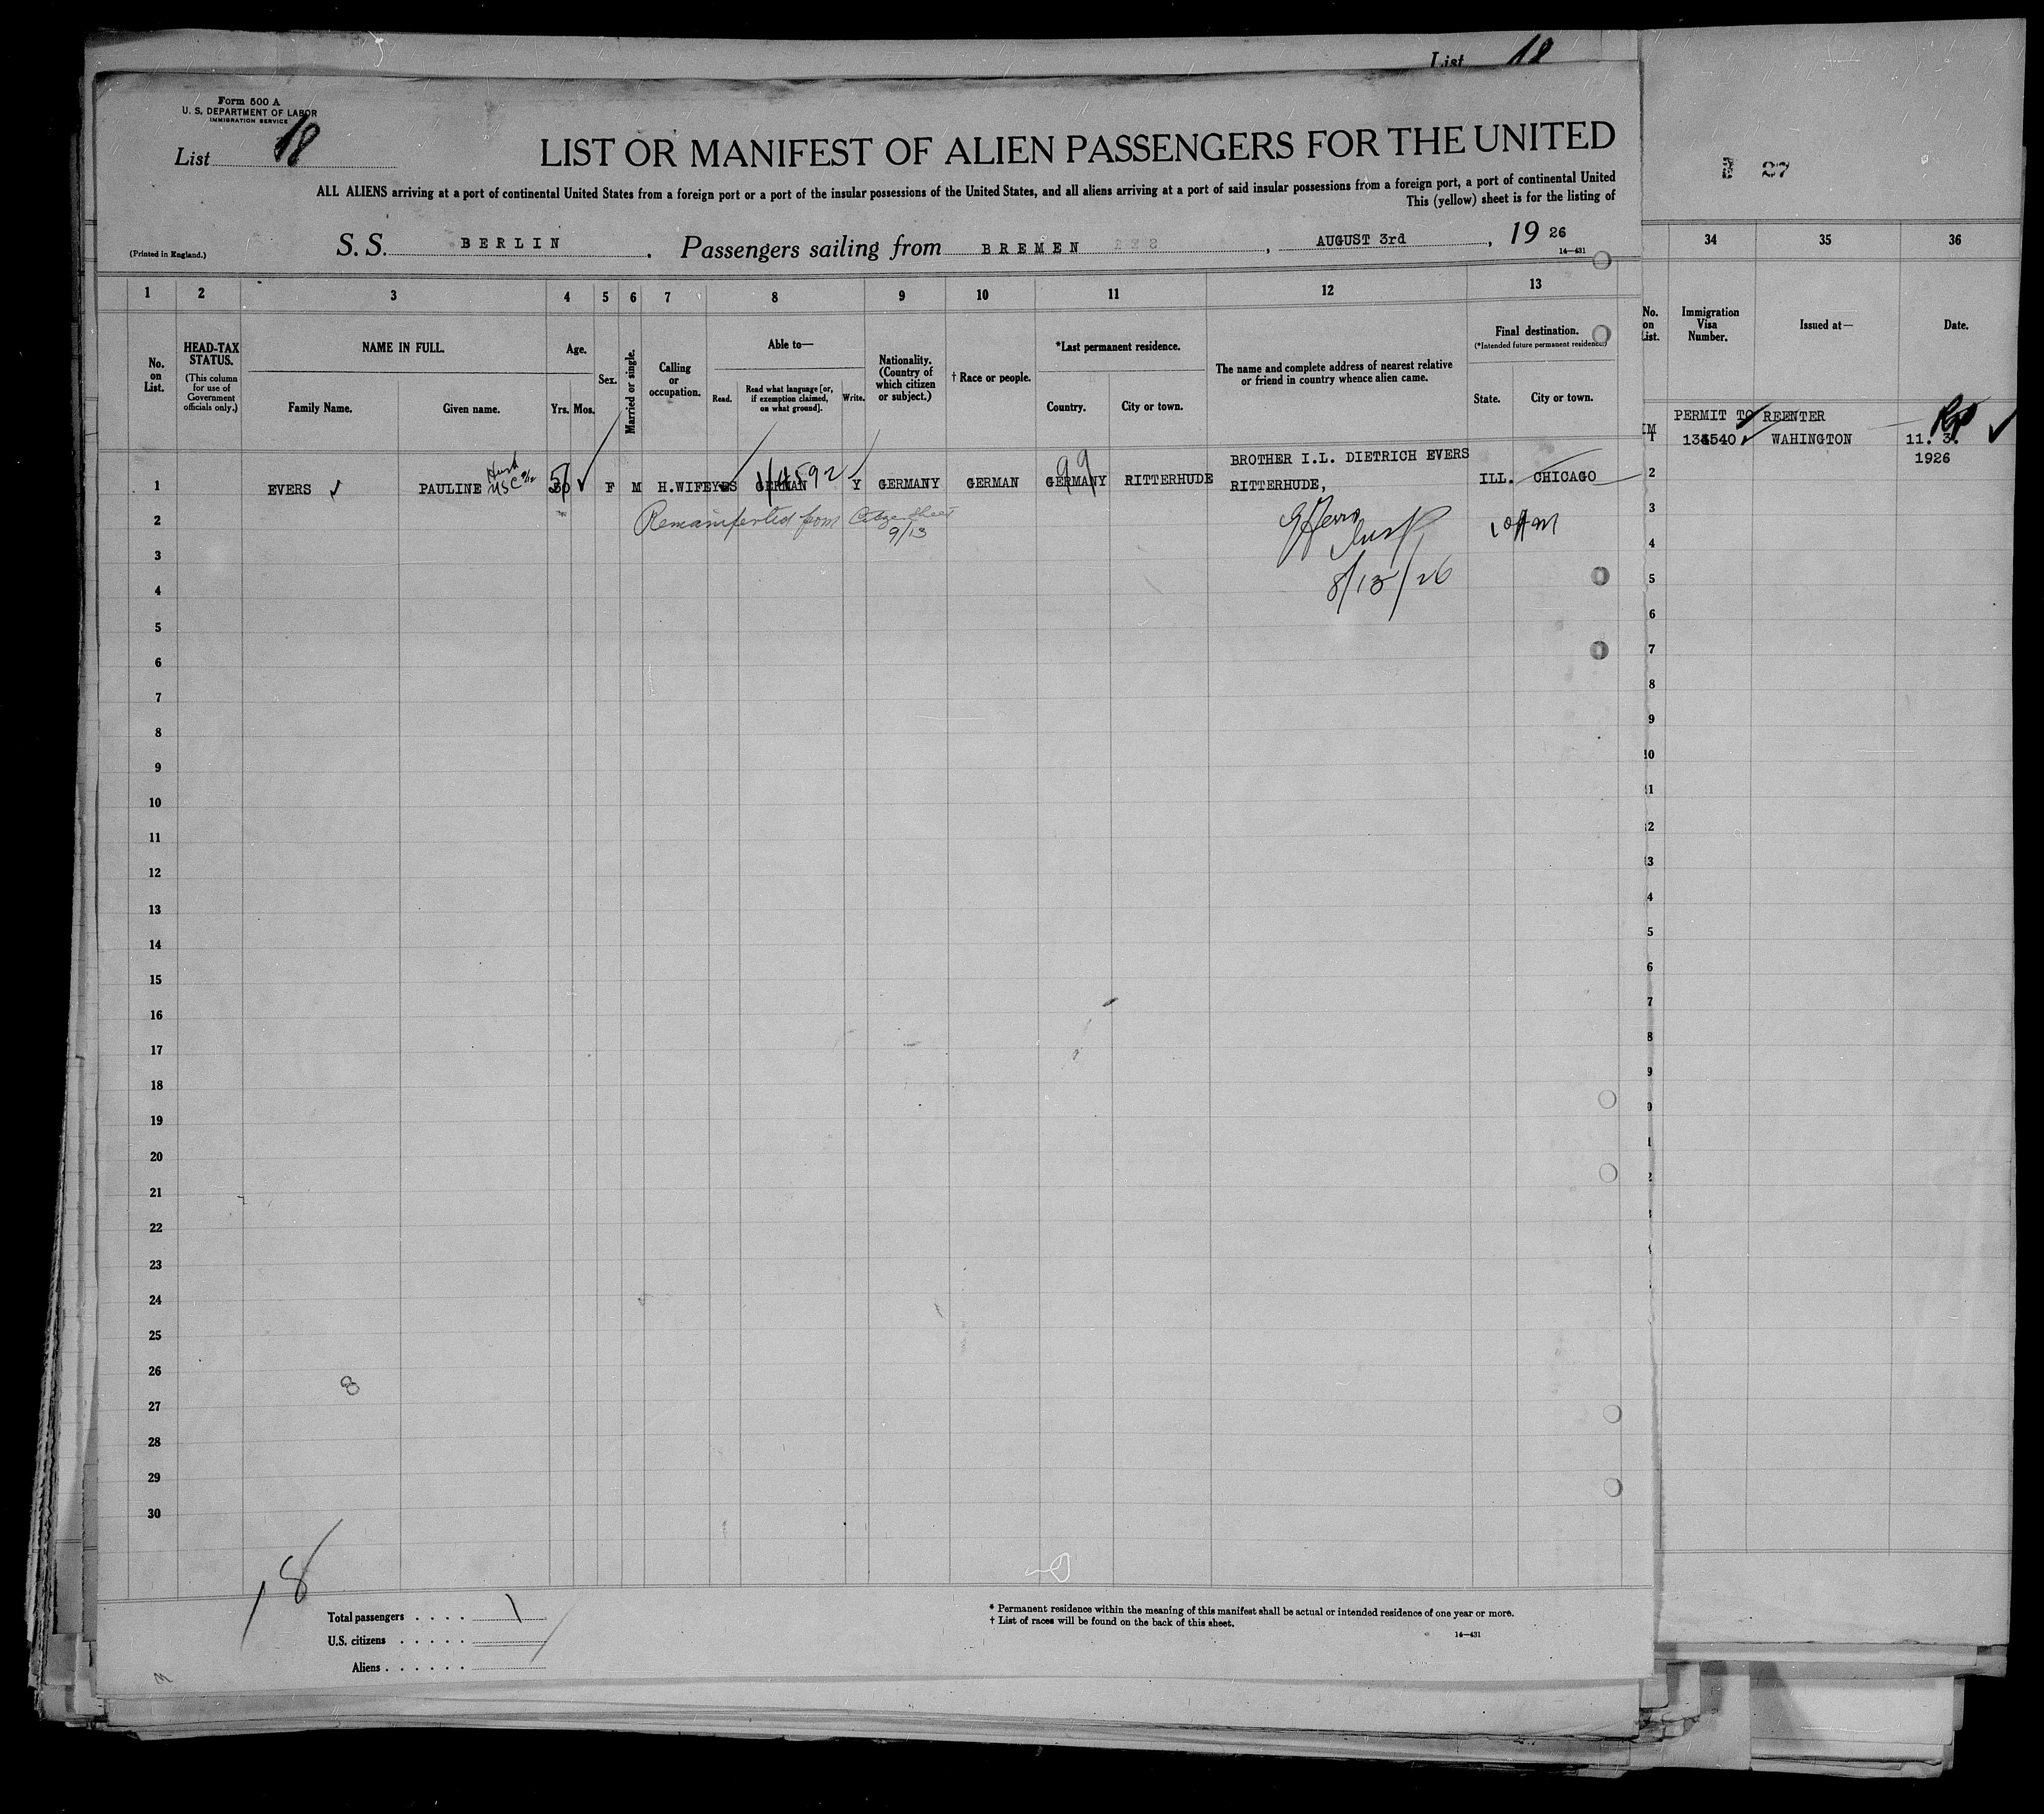 List 18
Form 500 A
U. S. DEPARTMENT OF LABOR
IMMIGRATION SERVICE
List 18
LIST OR MANIFEST OF ALIEN PASSENGERS FOR THE UNITED
ALL ALIENS arriving at a port of continental United States from a foreign port or a port of the insular possessions of the United States, and all aliens arriving at a port of said insular possessions from a foreign port, a port of continental United
This (yellow) sheet is for the listing of
27
(Printed in England.)
S. S. BERLIN. Passengers sailing from BREMEN, AUGUST 3rd, 19 26
14—431
1 2 3 4 5 6 7 8 9 10 11 12 13
34 35 36
No. on List.
HEAD-TAX STATUS.
(This column for use of Government officials only.)
NAME IN FULL.
Family Name. Given name.
Age.
Yrs. Mos.
Sex.
Married or single.
Calling or occupation.
Able to—
Read. Read what language [or, if exemption claimed, on what ground]. Write.
Nationality. (Country of which citizen or subject.)
† Race or people.
*Last permanent residence.
Country. City or town.
The name and complete address of nearest relative or friend in country whence alien came.
Final destination.
(*Intended future permanent residence.)
State. City or town.
No. on List.
Immigration Visa Number.
Issued at—
Date.
PERMIT TO REENTER
WAHINGTON 11. 3.
1926
BROTHER I.L. DIETRICH EVERS
1 EVERS PAULINE Husb USC F M H.WIFE YES GERMAN 1/4592 Y GERMANY GERMAN GERMANY 99 RITTERHUDE RITTERHUDE, ILL. CHICAGO
Remanifested from Citizen Sheet
9/13
8/13/26
2
3
4
5
6
7
8
9
10
11
12
13
14
15
16
17
18
19
20
21
22
23
24
25
26
27
28
29
30
8
18
Total passengers . . . . 1
U.S. citizens . . . . .
Aliens . . . . . .
* Permanent residence within the meaning of this manifest shall be actual or intended residence of one year or more.
† List of races will be found on the back of this sheet.
14—431